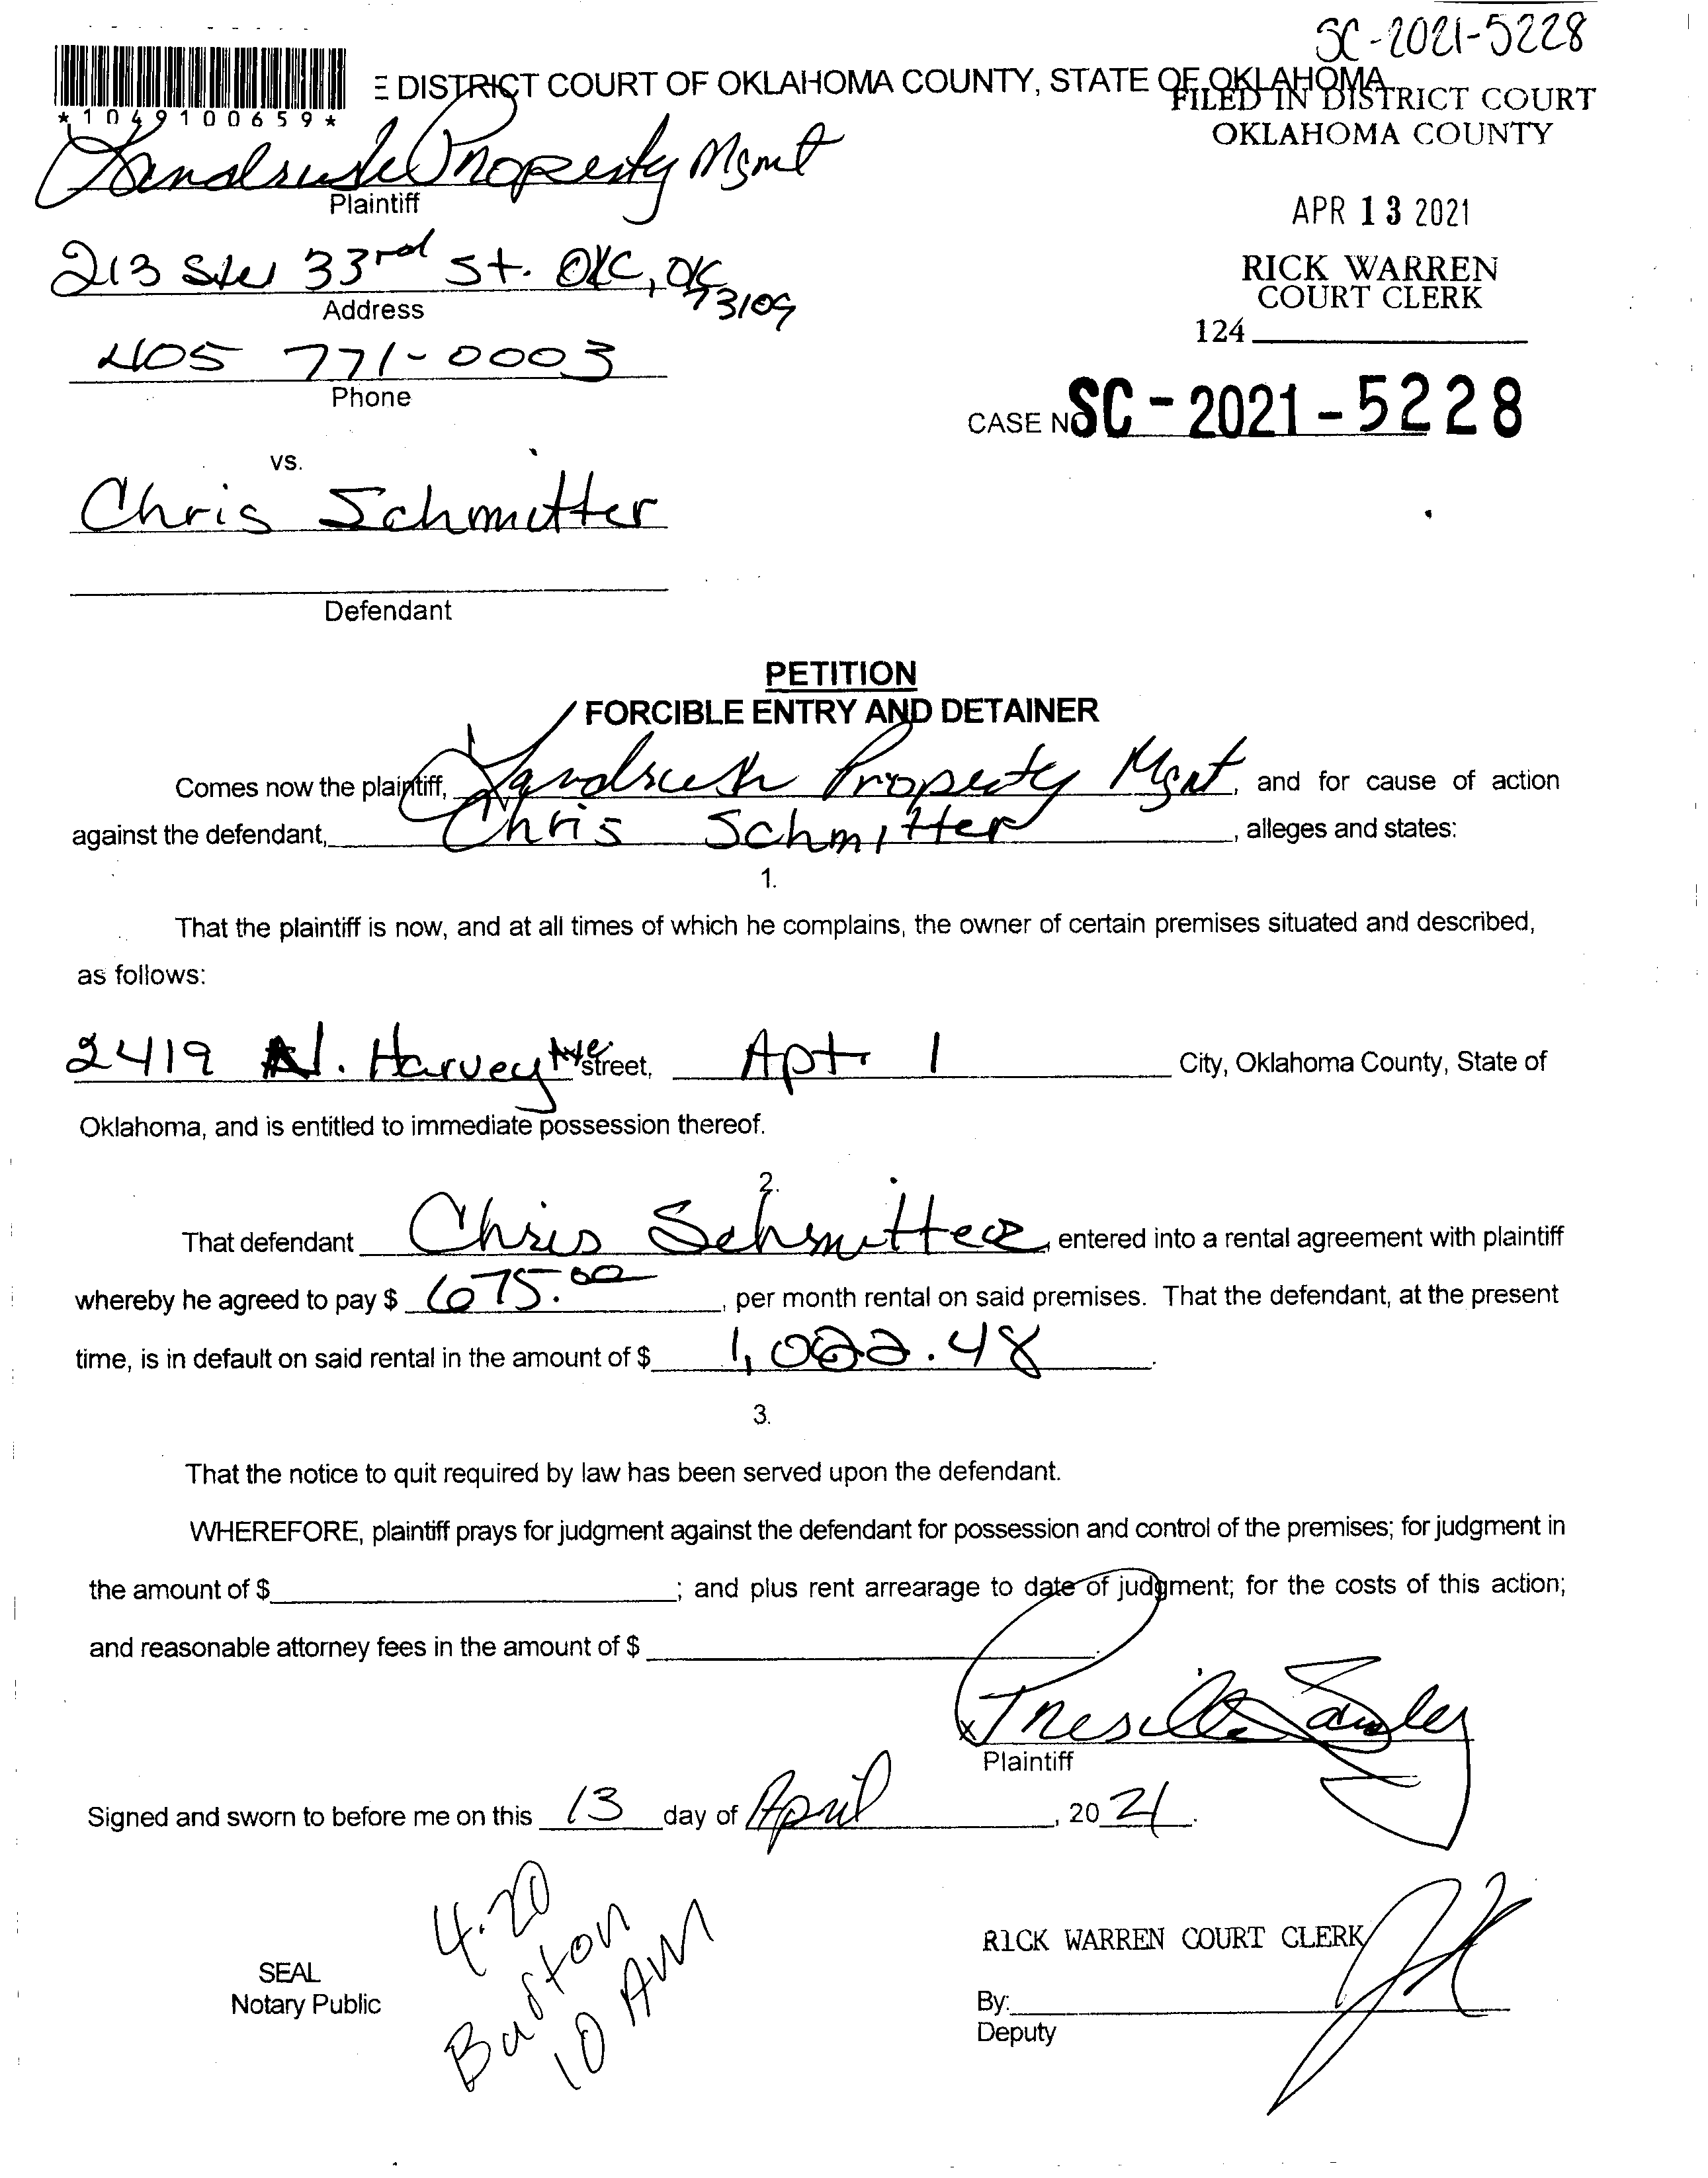 SC-2021-5228
E DISTRICT COURT OF OKLAHOMA COUNTY, STATE OF OKLAHOMA
FILED IN DISTRICT COURT
OKLAHOMA COUNTY
*1049100659*
Landrush Property Mgmt
Plaintiff
APR 13 2021
213 SW 33rd St. OKC, OK
73109
Address
RICK WARREN
COURT CLERK
124
405 771-0003
Phone
CASE NO SC-2021-5228
vs.
Chris Schmitter
Defendant
PETITION
FORCIBLE ENTRY AND DETAINER
Comes now the plaintiff, Landrush Property Mgnt, and for cause of action
against the defendant, Chris Schmitter, alleges and states:
1.
That the plaintiff is now, and at all times of which he complains, the owner of certain premises situated and described,
as follows:
2419 N. Harvey Ave street, Apt. 1 City, Oklahoma County, State of
Oklahoma, and is entitled to immediate possession thereof.
2.
That defendant Chris Schmitter, entered into a rental agreement with plaintiff
whereby he agreed to pay $ 675.00, per month rental on said premises. That the defendant, at the present
time, is in default on said rental in the amount of $ 1,022.48.
3.
That the notice to quit required by law has been served upon the defendant.
WHEREFORE, plaintiff prays for judgment against the defendant for possession and control of the premises; for judgment in
the amount of $ ; and plus rent arrearage to date of judgment; for the costs of this action;
and reasonable attorney fees in the amount of $ .
x
Plaintiff
Signed and sworn to before me on this 13 day of April, 2021.
4.20
Burton
10 AM
SEAL
Notary Public
R1CK WARREN COURT CLERK
By:
Deputy